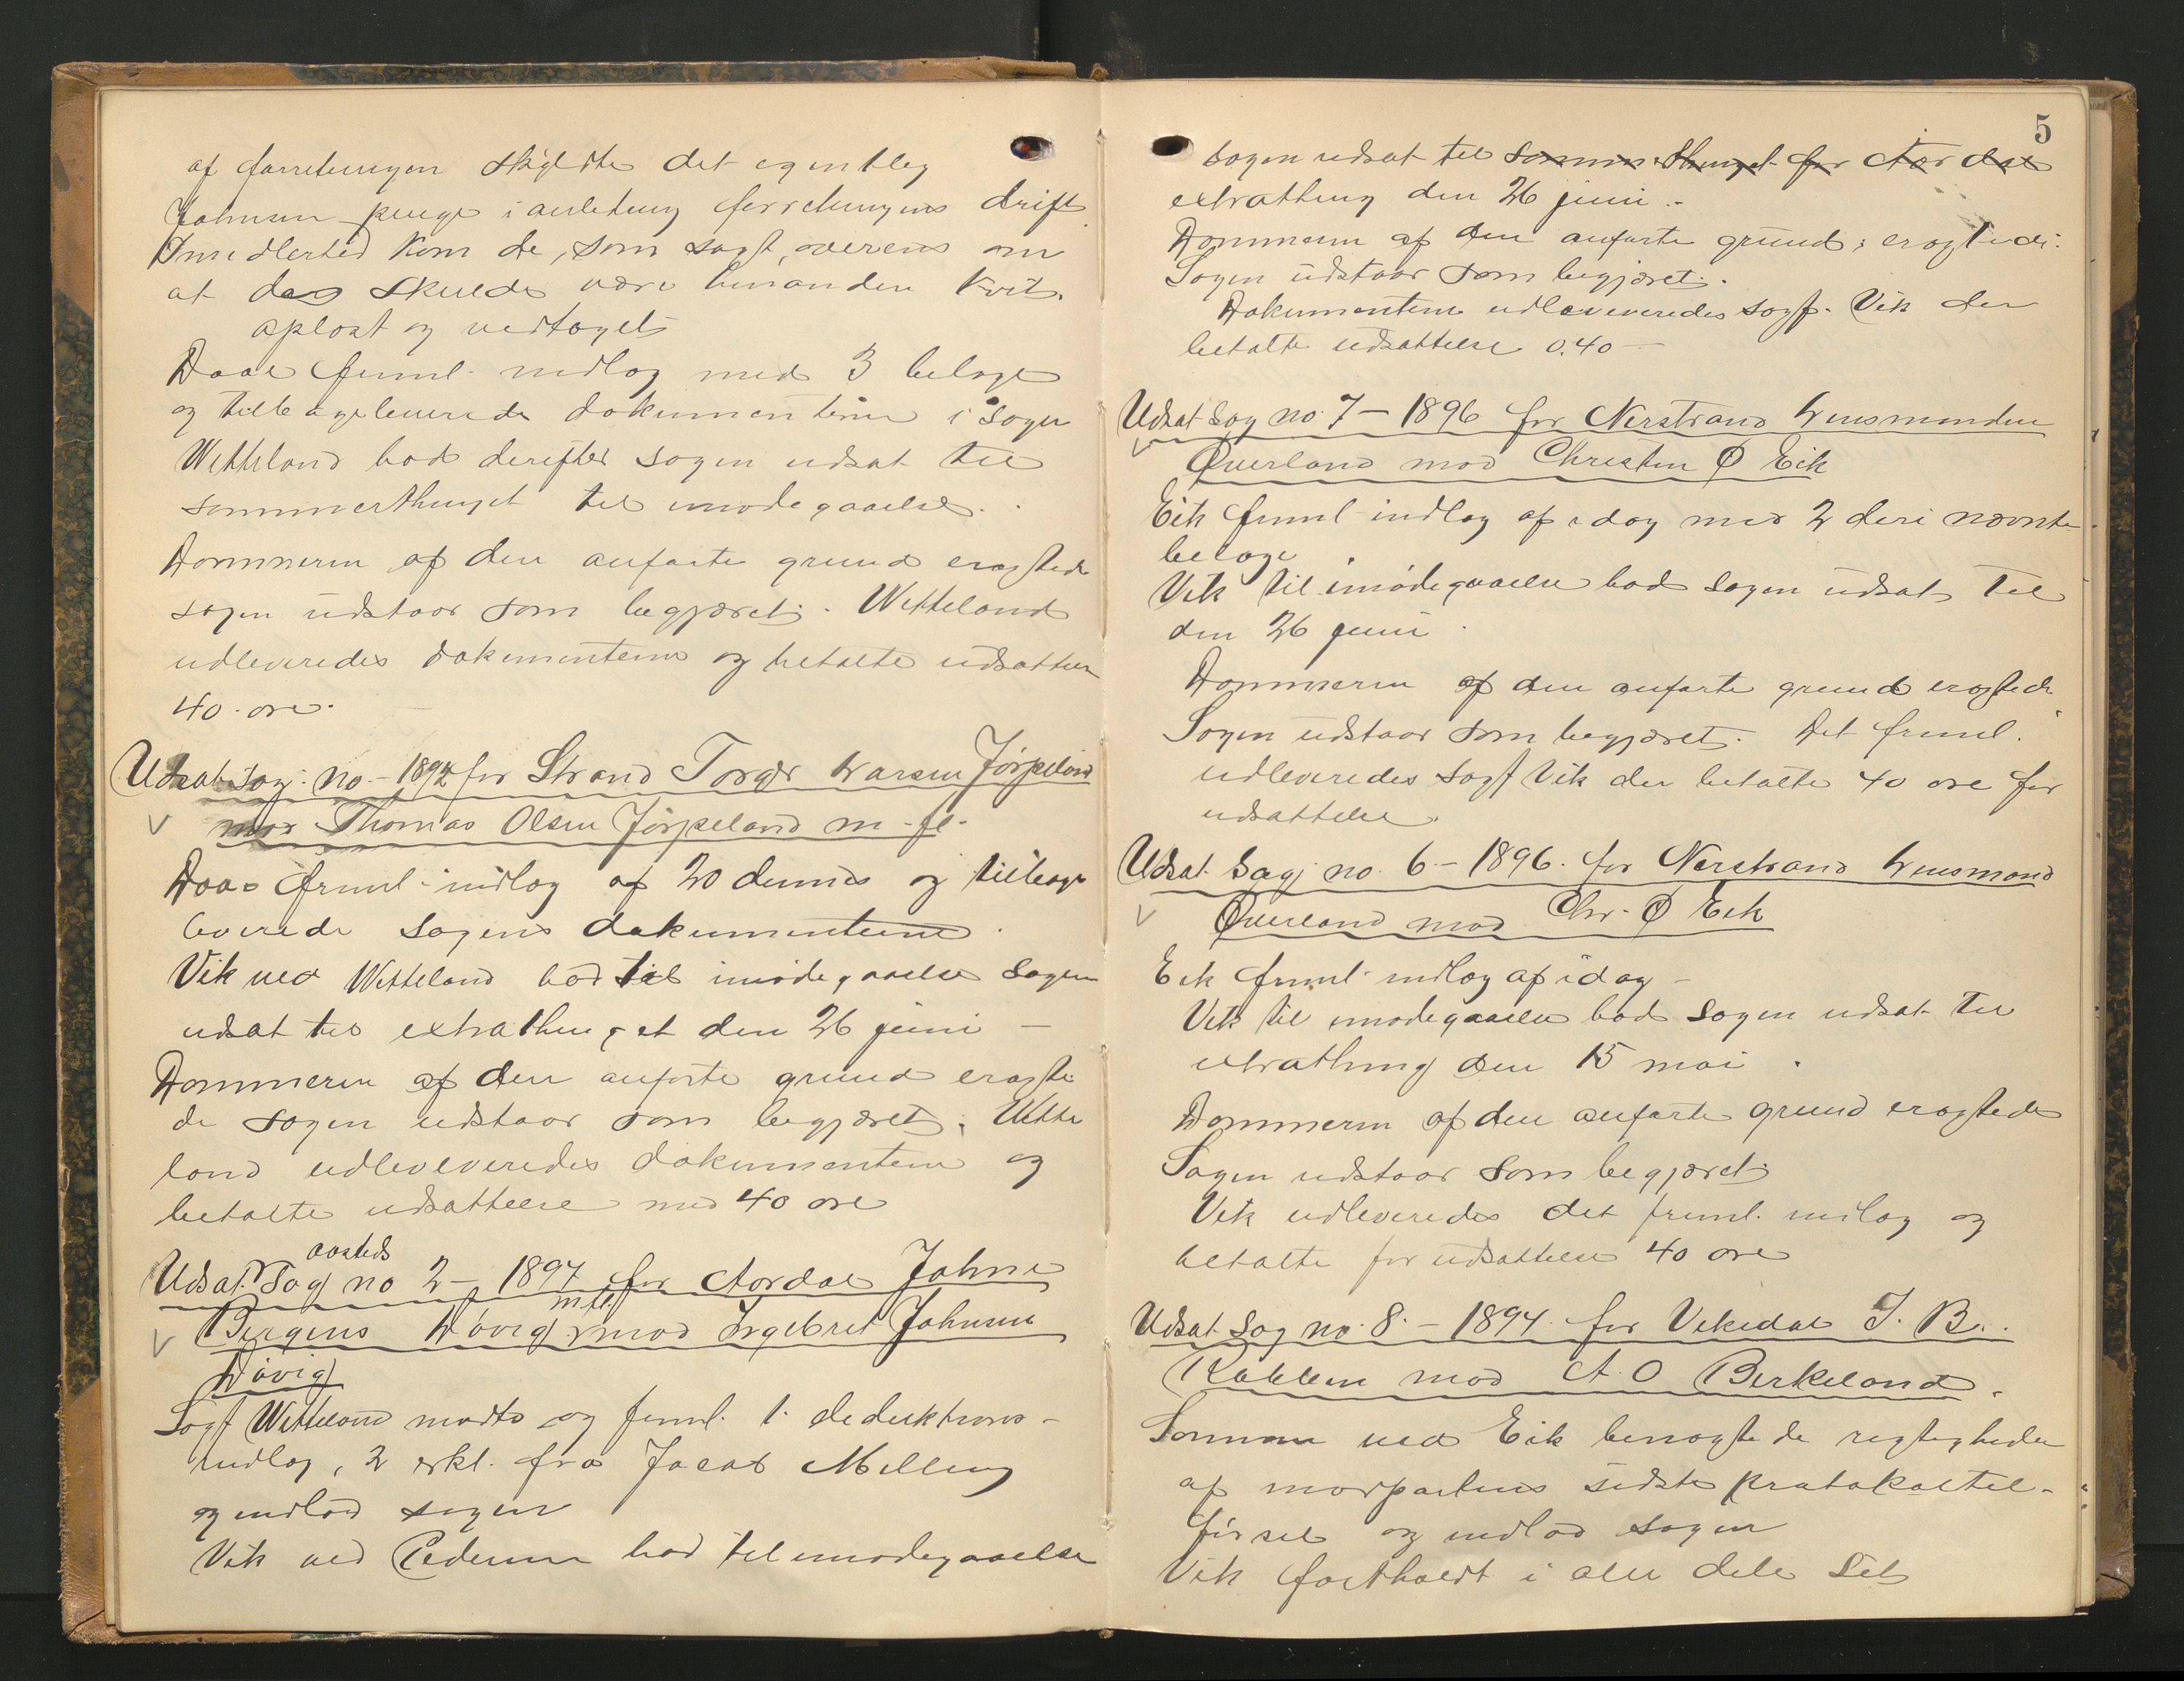 af forretningen skyldte det egentlig
Johnsen penge i anledning forretningens drift
Imidlertid kom de, som sagt, overens om
at de skulde være hinanden kvit.
oplæst og vedtaget
Daae freml. indlæg med 3 belage
og tilbageleverede dokumenterne i sagen
Wetteland bad derefter sagen udsat til
sommerthinget til imødegaaelse.
Dommeren af den anførte grund eragtede
sagen udstaar som begjæret. Wetteland
udleveredes dokumenterne og betalte udsættelse
40 øre.
Udsat sag no - 1894 for Strand Torger Larsen Jørpeland
mod Thomas Olsen Jørpeland m. fl.
Daae freml. indlæg af 20 dennes og tilbage
leverede sagens dokumenterne.
Vik ved Wetteland bad til imødegaaelse sagen
udsat til extrathinget den 26 juni –
Dommeren af den anførte grund eragte
de sagen udstaar som begjæret. Wette
land udleveredes dokumenterne og
betalte udsættelse med 40 øre
Udsat aasteds sag no 2 – 1894 for Aardal Johne
Bergens Døvig m fl. mod Ingebret Johnsen
Døvig
Sagf Wetteland mødte og freml. 1. deduktions-
indlæg, 2 erkl. fra Jacob Melling
og indlod sagen
Vik ved Pedersen bad til imødegaaelse
5
sagen udsat til sommerthinget for Aardal
extrathing den 26 juni.
Dommeren af den anførte grund; eragtede:
Sagen udstaar som begjæret.
Dokumenterne udleveredes sagf. Vik der
betalte udsættelse 0.40 –
Udsat sag no. 7 – 1896 for Nerstrand Lensmanden
Øverland mod Christen Ø Eik
Eik freml indlæg af idag med 2 deri nævnte
belage.
Vik til imødegaaelse bad sagen udsat til
den 26 juni.
Dommeren af den anførte grund eragtede
Sagen udstaar som begjæret. Det freml.
udleveredes sagf Vik der betalte 40 øre for
udsættelse.
Udsat Sag no. 6 – 1896 for Nerstrand Lensmand
Øverland mod Chr. Ø Eik
Eik freml. indlæg af idag –
Vik til imødegaaelse bad sagen udsat til
extrathing den 15 mai.
Dommeren af den anførte grund eragtede
Sagen udstaar som begjæret
Vik udleveredes det freml. indlæg og
betalte for udsættelse 40 øre
Udsat Sag no. 8. – 1894 for Vikedal J. B.
Røkken mod A. O Birkeland.
Sommer ved Eik benægtede rigtigheden
af modpartens sidste protokoltil-
førsel og indlod sagen
Vik fastholdt i alle dele sit